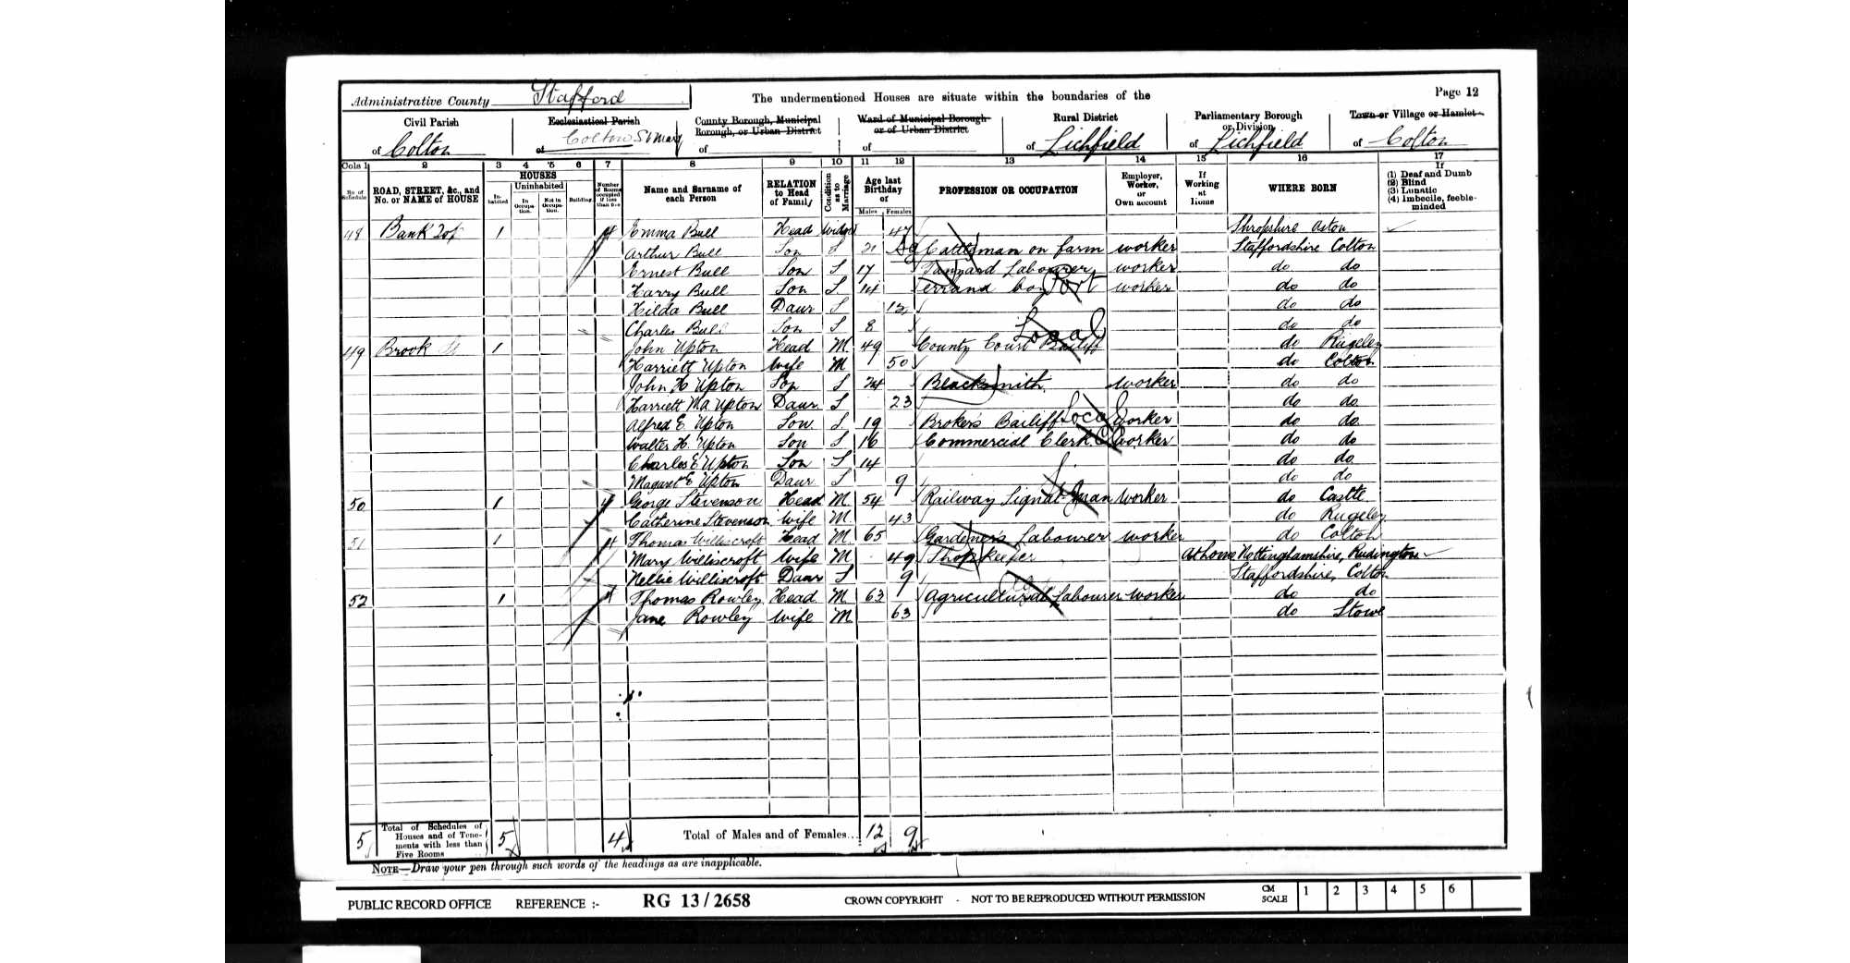 Administrative County Stafford The undermentioned Houses are situate within the boundaries of the Page 12
Civil Parish Ecclesiastical Parish County Borough, Municipal Borough, or Urban District Ward of Municipal Borough or of Urban District Rural District Parliamentary Borough or Division Town or Village or Hamlet
of Colton of Colton St Mary of of of Lichfield of Lichfield of Colton
Cols 1 2 3 4 5 6 7 8 9 10 11 12 13 14 15 16 17
No. of Schedule ROAD, STREET, &c., and No. or NAME of HOUSE HOUSES Inhabited Uninhabited In Occupation. Not in Occupation. Building. Number of Rooms occupied if less than five Name and Surname of each Person RELATION to Head of Family Condition as to Marriage Age last Birthday of Males Females PROFESSION OR OCCUPATION Employer, Worker, or Own account If Working at Home WHERE BORN If (1) Deaf and Dumb (2) Blind (3) Lunatic (4) Imbecile, feeble-minded
48 Bank 1 4 Emma Bull Head Widow 47 Shropshire Aston
Arthur Bull Son S 21 Cattleman on farm worker Staffordshire Colton
Ernest Bull Son S 17 Tanyard Labourer worker do do
Harry Bull Son S 14 Errand boy worker do do
Hilda Bull Daur S 12 do do
Charles Bull Son S 8 do do
49 Brook 1 John Upton Head M 49 County Court Bailiff Local do Rugeley
Harriett Upton Wife M 50 do Colton
John H Upton Son S 24 Blacksmith worker do do
Harriett Upton Daur S 23 do do
Alfred E Upton Son S 19 Broker's Bailiff Local worker do do
Walter H. Upton Son S 16 Commercial Clerk worker do do
Charles E Upton Son S 14 do do
Magaret E Upton Daur S 9 do do
50 1 4 George Stevenson Head M 54 Railway Signal Man worker do Castle
Catherine Stevenson Wife M 43 do Rugeley
51 1 4 Thomas Williscroft Head M 65 Gardener's Labourer worker do Colton
Mary Williscroft Wife M 49 Shop keeper At home Nottinghamshire, Rudington
Nellie Williscroft Daur S 9 Staffordshire, Colton
52 1 Thomas Rowley Head M 63 Agricultural Labourer worker do do
Jane Rowley Wife M 63 do Stowe
5 Total of Schedules of Houses and of Tenements with less than Five Rooms 5 4 Total of Males and of Females... 12 9
NOTE—Draw your pen through such words of the headings as are inapplicable.
PUBLIC RECORD OFFICE REFERENCE :- RG 13/2658 CROWN COPYRIGHT - NOT TO BE REPRODUCED WITHOUT PERMISSION CM SCALE 1 2 3 4 5 6